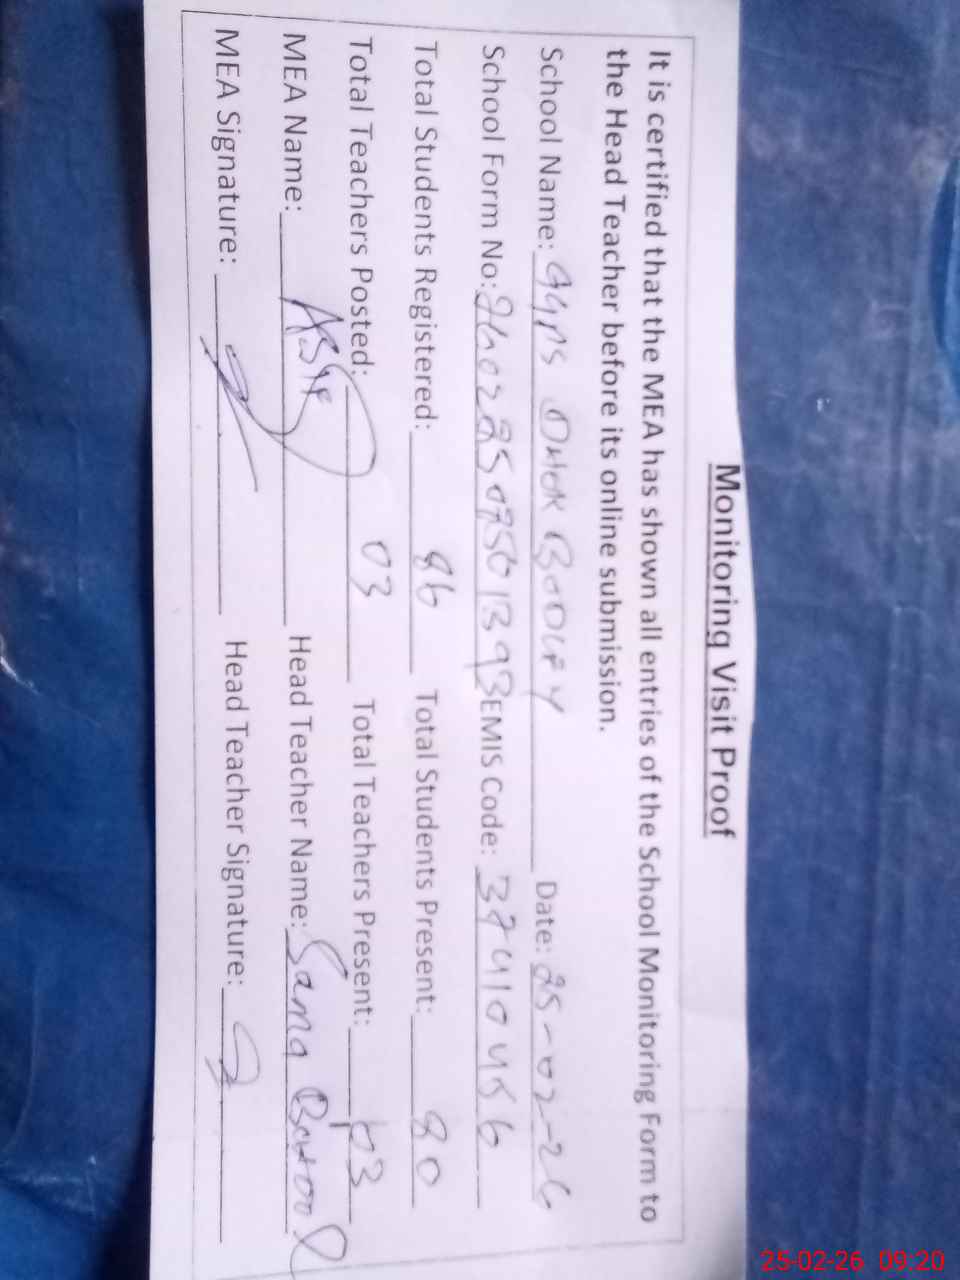 Monitoring Visit Proof
It is certified that the MEA has shown all entries of the School Monitoring Form to
the Head Teacher before its online submission.
School Name: GGPS DHOK Date: 25-02-26
School Form No: EMIS Code: 37410456
Total Students Registered: 86 Total Students Present: 80
Total Teachers Posted: 03 Total Teachers Present: 03
MEA Name: ASIF Head Teacher Name: Sama Batool
MEA Signature: Head Teacher Signature:
25-02-26 09:20